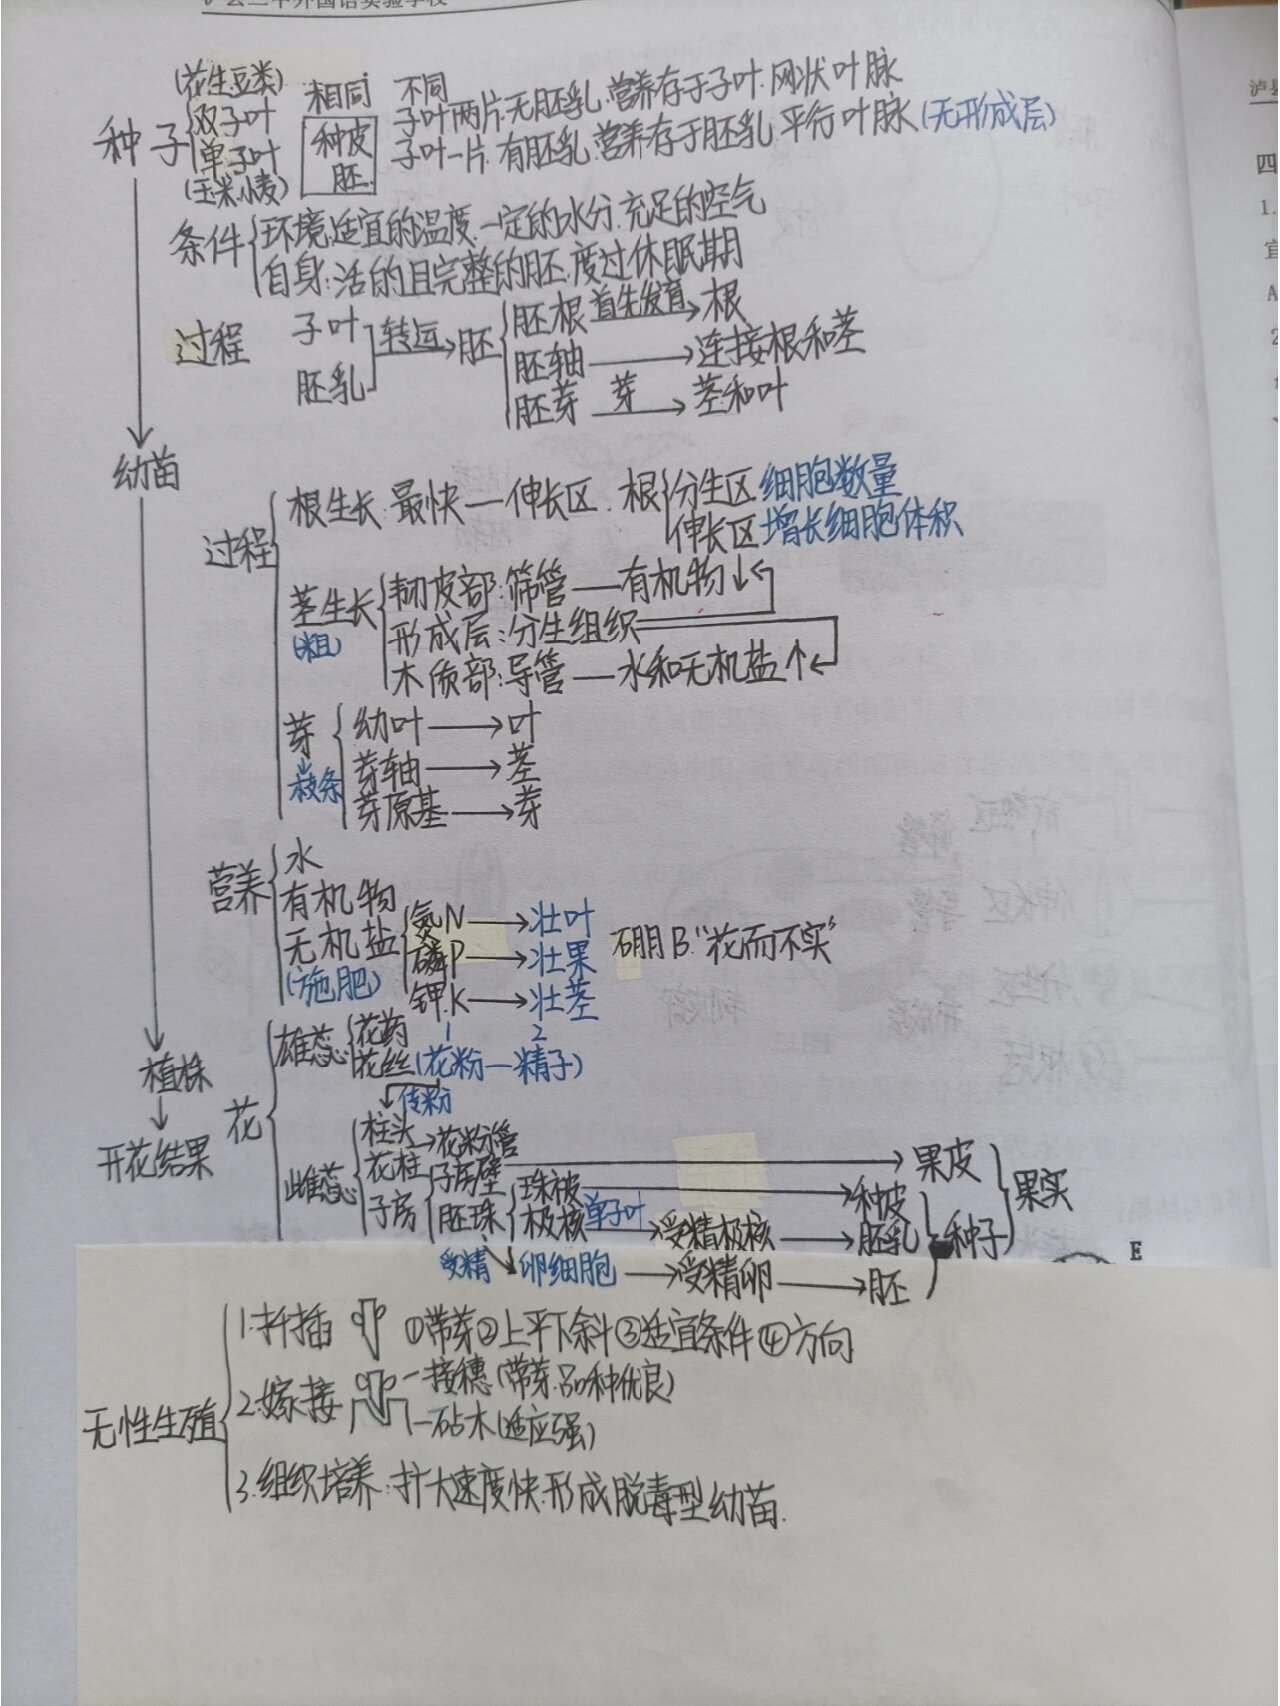 泸县二中外国语实验学校
(花生.豆类) 相同 不同
种子 双子叶 种皮 子叶两片.无胚乳.营养存于子叶.网状叶脉
单子叶 胚. 子叶一片.有胚乳.营养存于胚乳.平行叶脉(无形成层)
(玉米.小麦)
条件 环境:适宜的温度.一定的水分.充足的空气
自身:活的且完整的胚.度过休眠期
过程 子叶 转运→胚 胚根 首先发育→根
胚乳 胚轴→连接根和茎
胚芽 芽→茎和叶
幼苗
过程 根生长:最快—伸长区. 根 分生区.细胞数量
伸长区 增长细胞体积
茎生长 韧皮部:筛管—有机物↓
(粗) 形成层:分生组织
木质部:导管—水和无机盐↑
芽 幼叶→叶
枝条 芽轴→茎
芽原基→芽
营养 水
有机物
无机盐 氮N→壮叶
(施肥) 磷P→壮果 硼B:"花而不实"
钾.K→壮茎
植株
花 雄蕊 花药 1 2
花丝(花粉—精子)
传粉
开花结果
雌蕊 柱头→花粉管
花柱 子房壁→果皮 果实
子房 胚珠 珠被→种皮
极核 单子叶→受精极核→胚乳 种子
受精 卵细胞→受精卵→胚
E
无性生殖 1.扦插 ①带芽②上平下斜③适宜条件④方向
2.嫁接 —接穗(带芽.品种优良)
—砧木(适应强)
3.组织培养:扩大速度快.形成脱毒型幼苗.
泸县
四
1.
宜
A
2